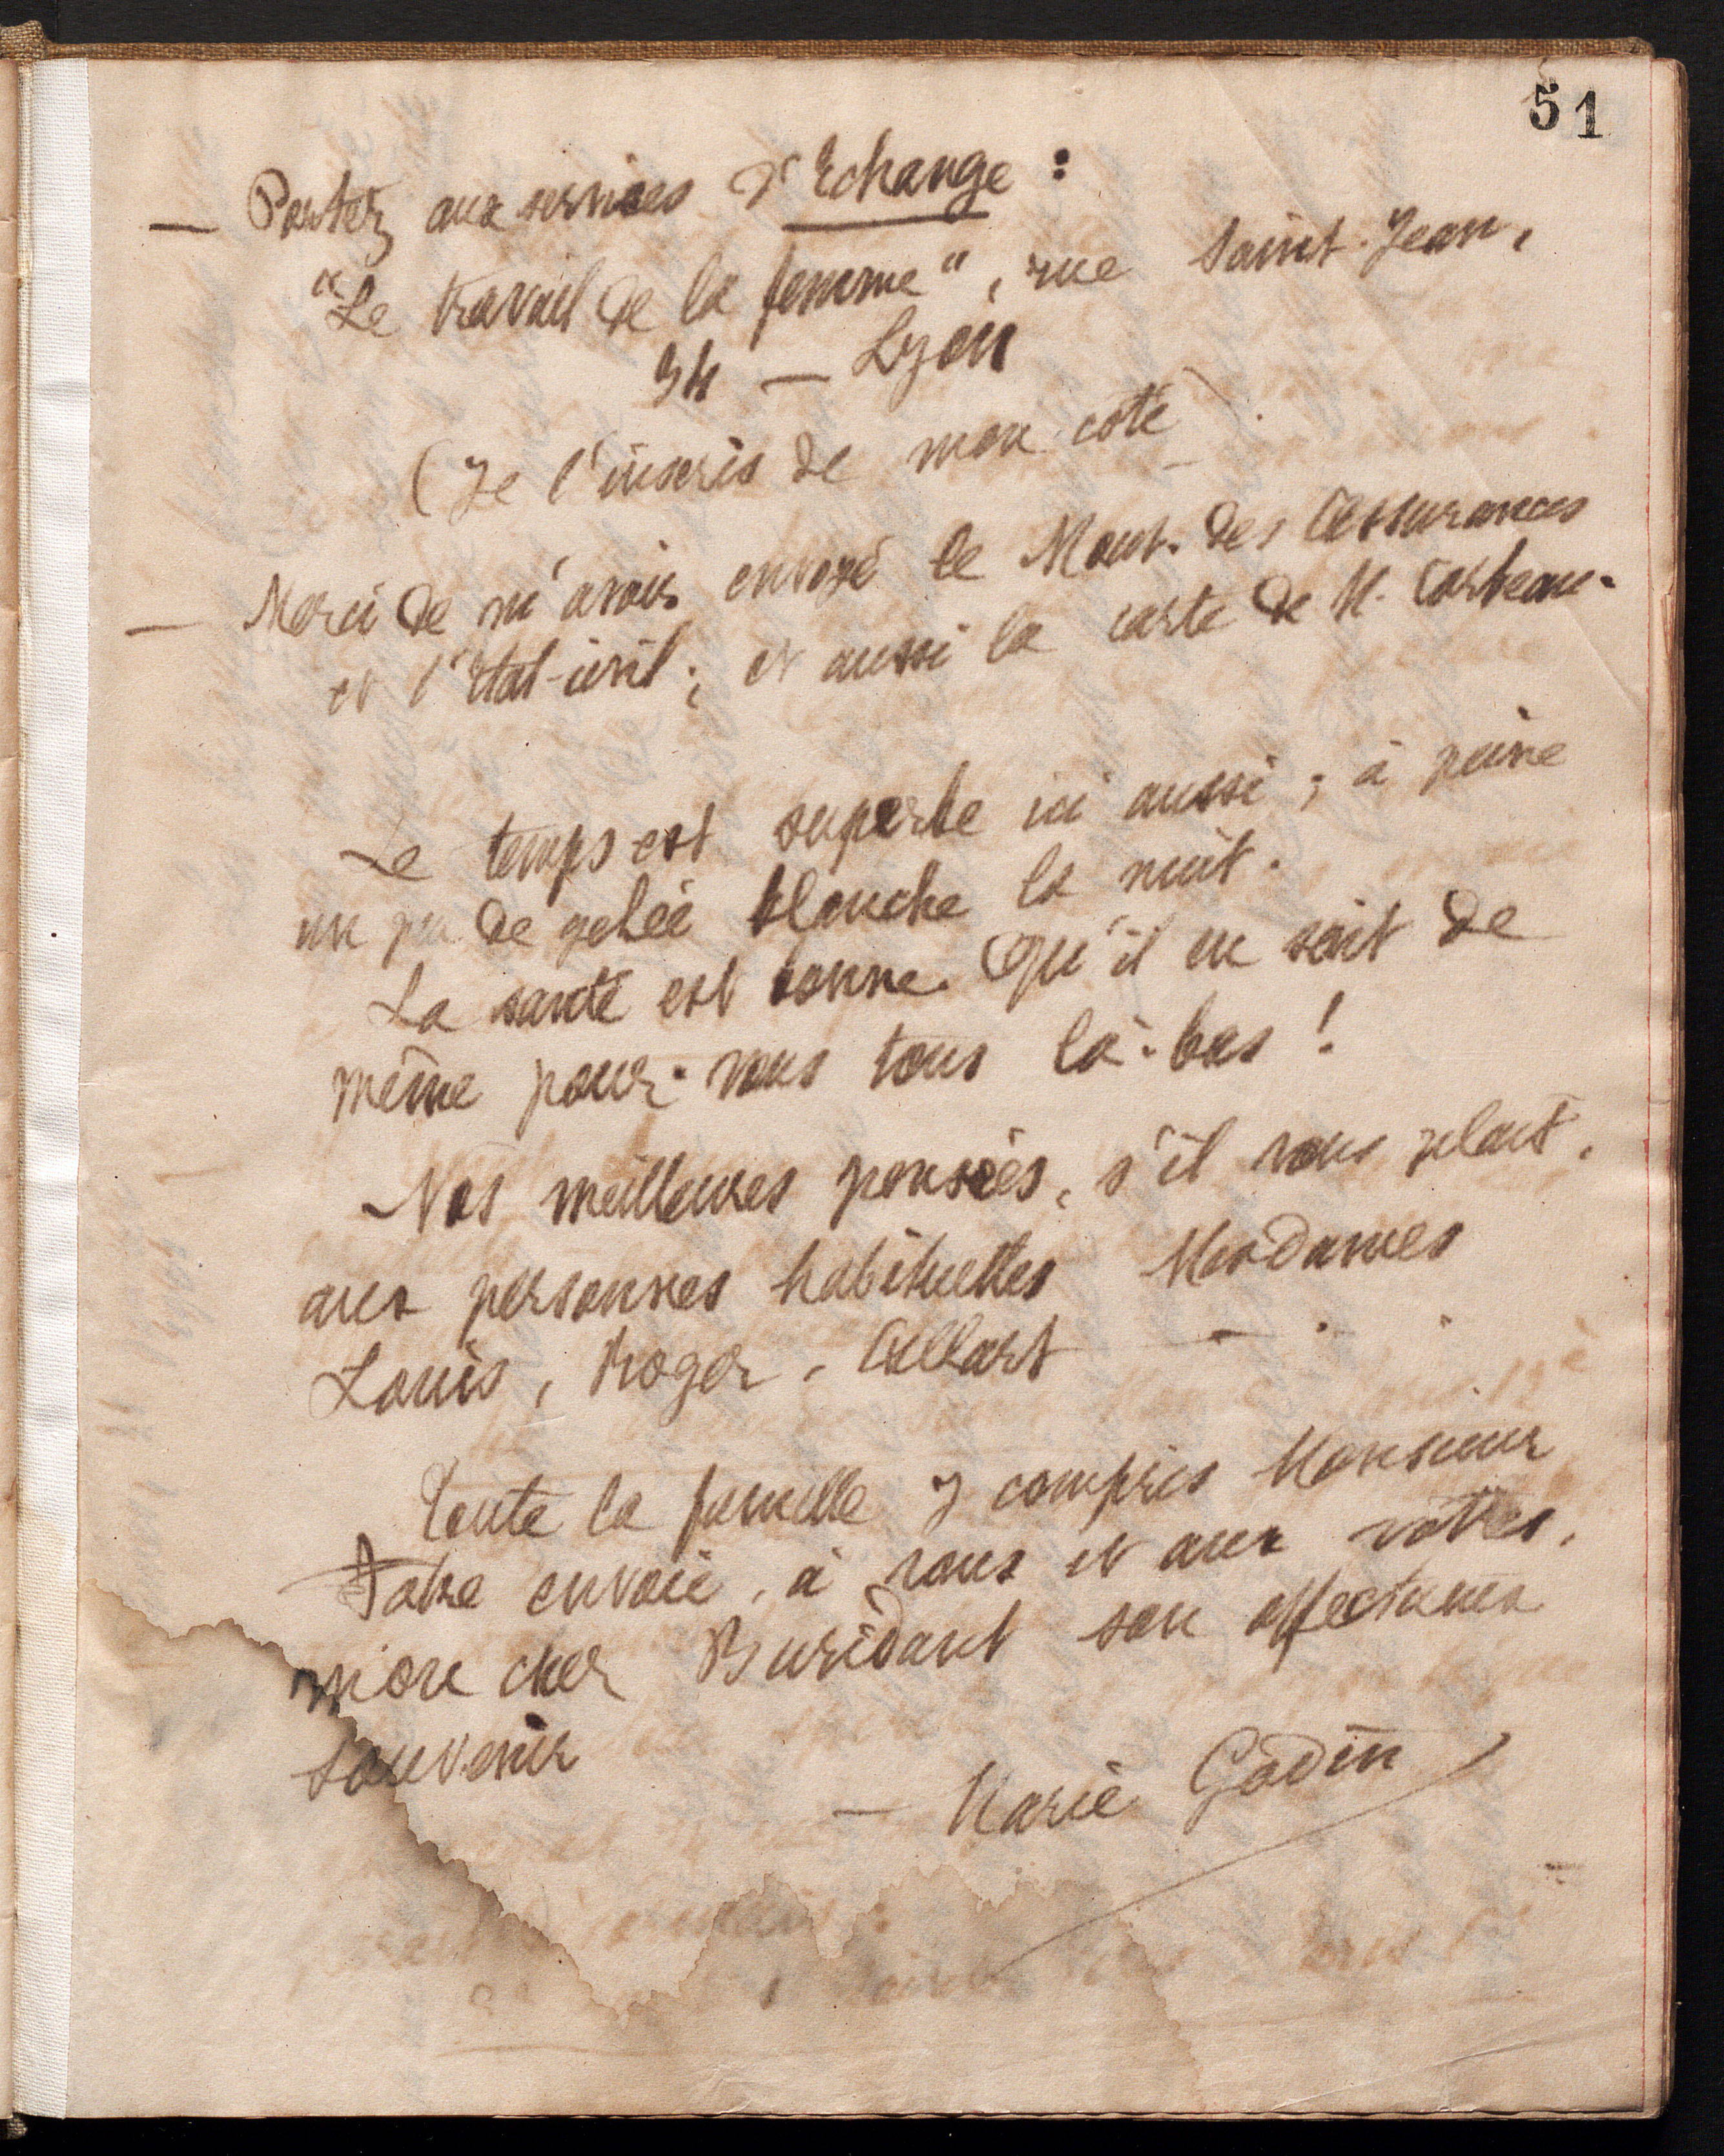 51
— Portez aux services d'Echange :
"Le travail de la femme", rue Saint-Jean,
34 — Lyon
(Je l'inscris de mon côté).
— Merci de m'avoir envoyé le Mont. des Assurances
et l'Etat-civil ; et aussi la carte de M.
Le temps est superbe ici aussi ; à peine
un peu de gelée blanche la nuit.
La santé est bonne. Qu'il en soit de
même pour vous tous là-bas !
Nos meilleures pensées, s'il vous plait,
aux personnes habituelles Mesdames
Louis, Roger, Allart —
Toute la famille y compris Monsieur
envoie, à vous et aux vôtres,
mon cher Buridant son affectueux
souvenir
— Marie Godin